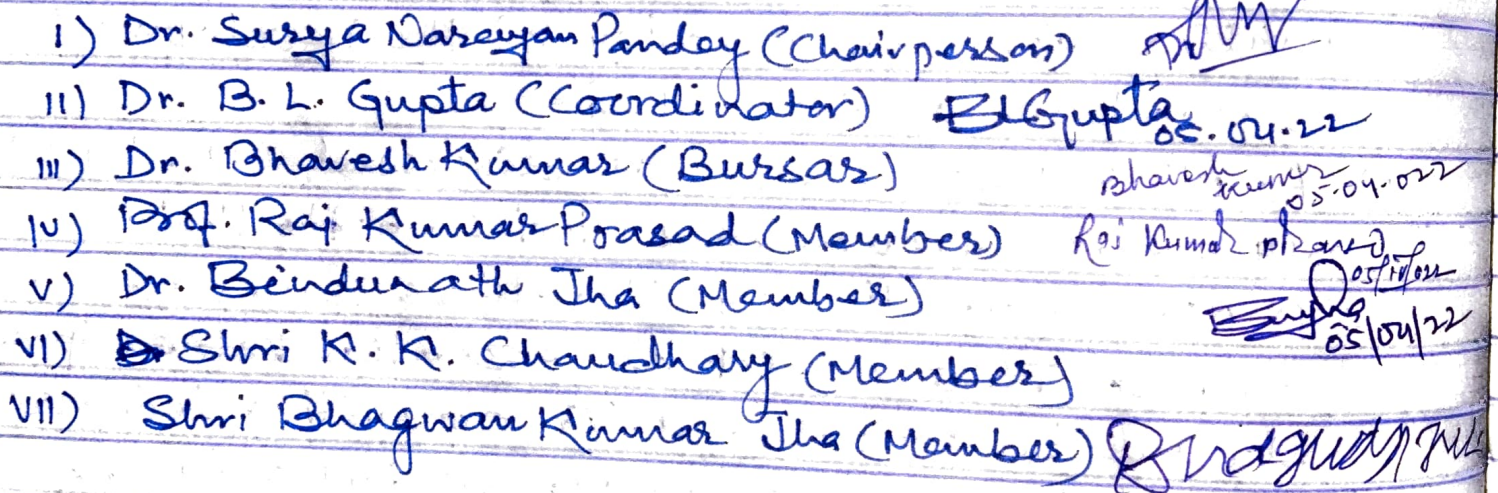 I) Dr. Surya Narayan Pandey (Chairperson)
II) Dr. B. L. Gupta (Coordinator) BLGupta 05.04.22
III) Dr. Bhavesh Kumar (Bursar) Bhavesh Kumar 05.04.022
IV) Prof. Raj Kumar Prasad (Member) Raj Kumar prasad
V) Dr. Bindunath Jha (Member) 05/04/22
VI) Shri K. K. Chaudhary (Member)
VII) Shri Bhagwan Kumar Jha (Member)